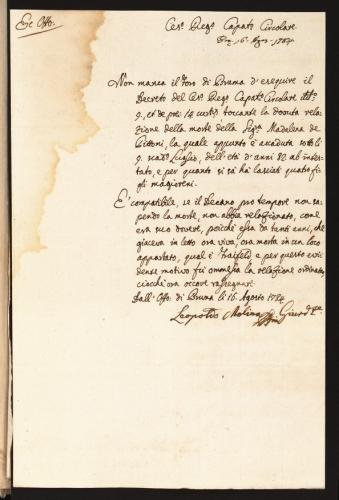 Ex Offo.
Ces. Reg. Capato Circolare
16. Agos. 1784.
Non manca il foro di Bruma d'esequire il
Decreto del Ces. Reg. Capat. Circolare
9. et de pres. 14 toccante la dovuta rela-
zione della morte della Sig.ra Madalena de
la quale appunto è accaduta sotto li
9. Luglio, dell'età d'anni 82 ab intes-
tato, e per quanto si sà hà lasciati quatro fi-
gli maggiori.
E' compatibile, se il Decano pro tempore non sa-
pendo la morte, non abbia relazionato, come
era suo dovere, poiche essa da tanti anni, che
giaceva in letto ora viva, ora morta in un loco
appartato, qual è e per questo evi-
dente motivo fù ommessa la relazione ordinata,
ciocchè ora occore rassegnare.
Dall' Offo. di Bruma li 16. Agosto 1784
Leopoldo Molinari